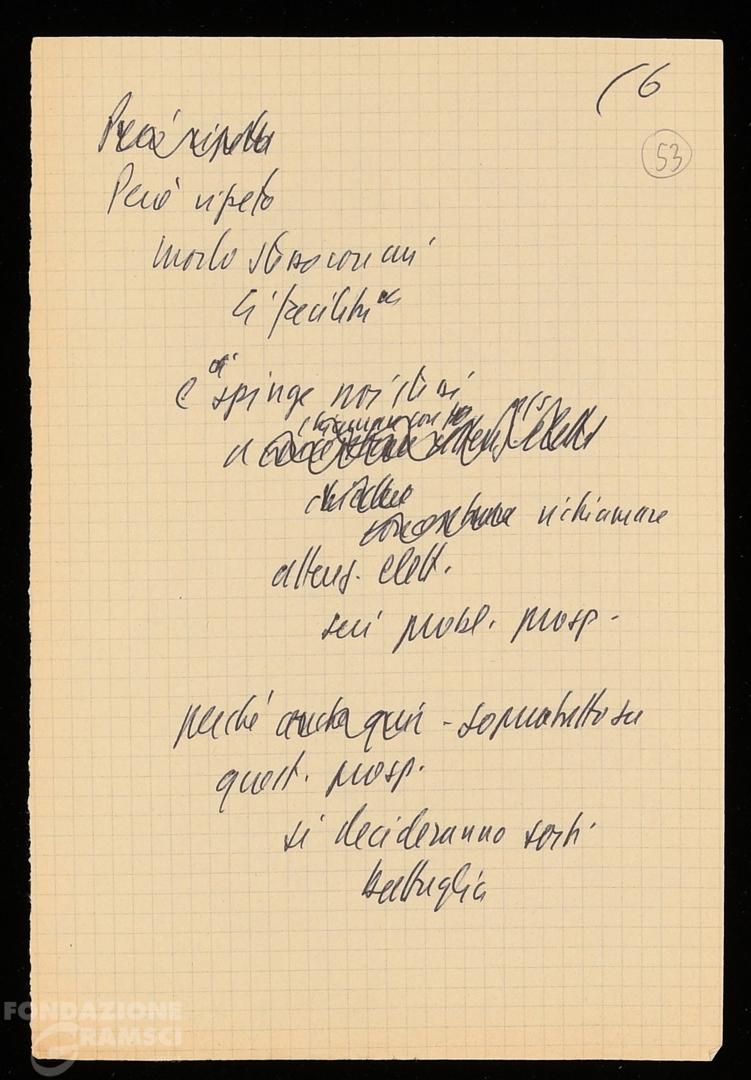 (6
53
Però ripeto
Però ripeto
molto stesso con cui
ci facilita
e ci spinge noi stessi
a
richiamare
attenz. elett.
sui probl. prosp.
perché anche qui - sopratutto su
quest. prosp.
si decideranno sorti
battaglia
FONDAZIONE
GRAMSCI